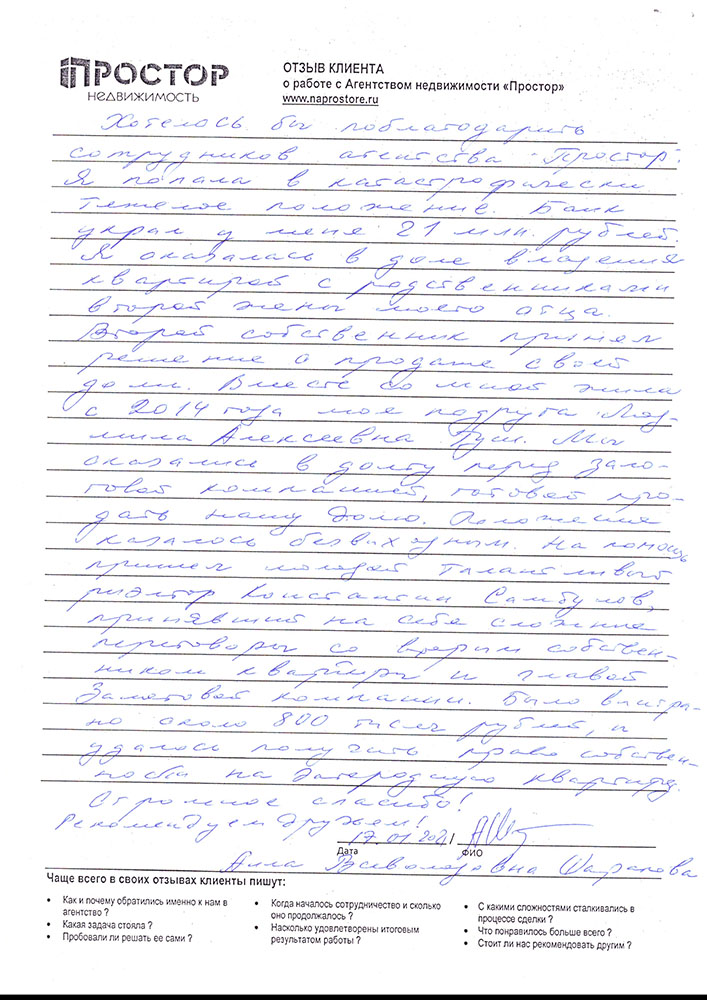 ПРОСТОР
НЕДВИЖИМОСТЬ
ОТЗЫВ КЛИЕНТА
о работе с Агентством недвижимости «Простор»
www.naprostore.ru
Хотелось бы поблагодарить
сотрудников агентства "Простор".
Я попала в катастрофически
тяжелое положение. Банк
украл у меня 21 млн. рублей.
Я оказалась в доле владения
квартирой с родственниками
второй жены моего отца.
Второй собственник принял
решение о продаже своей
доли. Вместе со мной жила
с 2014 года моя подруга Люд-
мила Алексеевна Гущ. Мы
оказались в долгу перед зало-
говой компанией, готовой про-
дать нашу долю. Положение
казалось безвыходным. На помощь
пришел молодой талантливый
риэлтор Константин Самбулов,
принявший на себя сложные
переговоры со вторым собствен-
ником квартиры и главой
Залоговой компании. Было выигра-
но около 800 тысяч рублей, и
удалось получить право собствен-
ности на загородную квартиру.
Огромное спасибо!
Рекомендуем друзьям!
17.01.2021 /
Дата
ФИО
Алла Всеволодовна
Чаще всего в своих отзывах клиенты пишут:
• Как и почему обратились именно к нам в
агентство ?
• Какая задача стояла ?
• Пробовали ли решать ее сами ?
• Когда началось сотрудничество и сколько
оно продолжалось ?
• Насколько удовлетворены итоговым
результатом работы ?
• С какими сложностями сталкивались в
процессе сделки ?
• Что понравилось больше всего ?
• Стоит ли нас рекомендовать другим ?